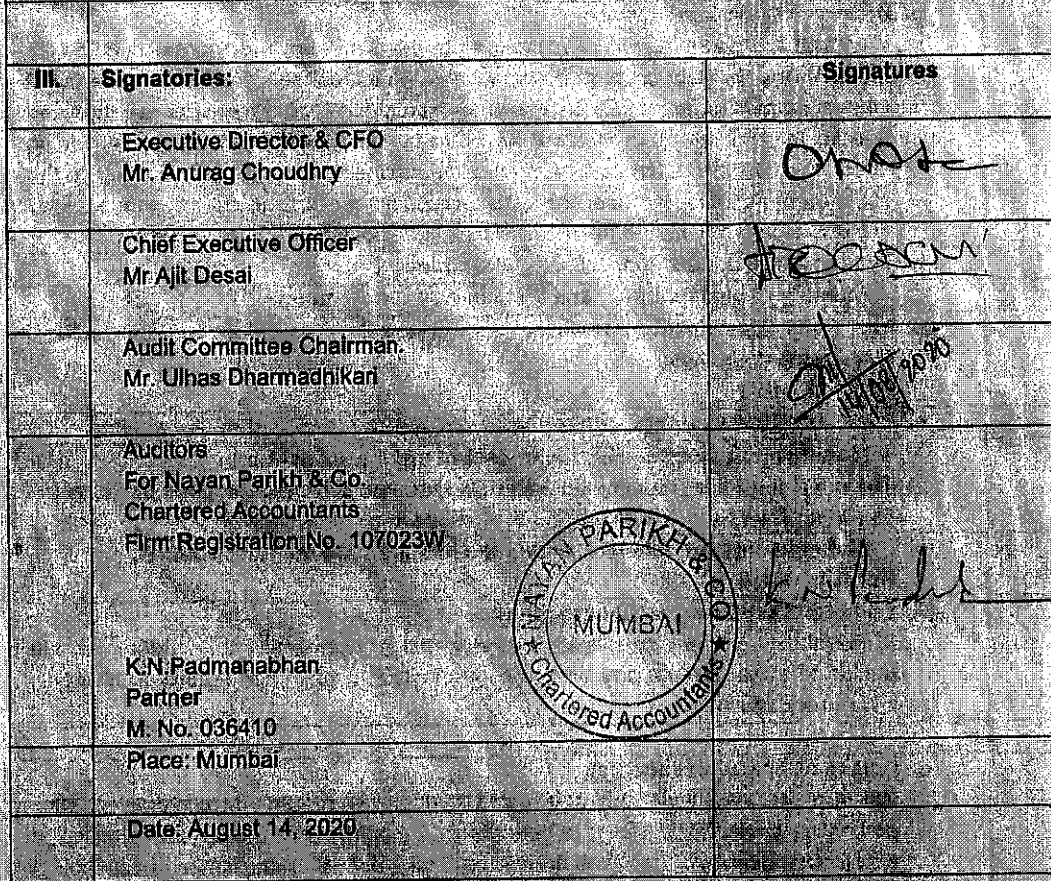 III. Signatories: Signatures
Executive Director & CFO
Mr. Anurag Choudhry
Chief Executive Officer
Mr Ajit Desai
Audit Committee Chairman.
Mr. Ulhas Dharmadhikari
14/08/2020
Auditors
For Nayan Parikh & Co.
Chartered Accountants
Firm Registration No. 107023W
NAYAN PARIKH & CO
MUMBAI
★ Chartered Accountants ★
K.N.Padmanabhan
Partner
M. No. 036410
Place: Mumbai
Date: August 14, 2020